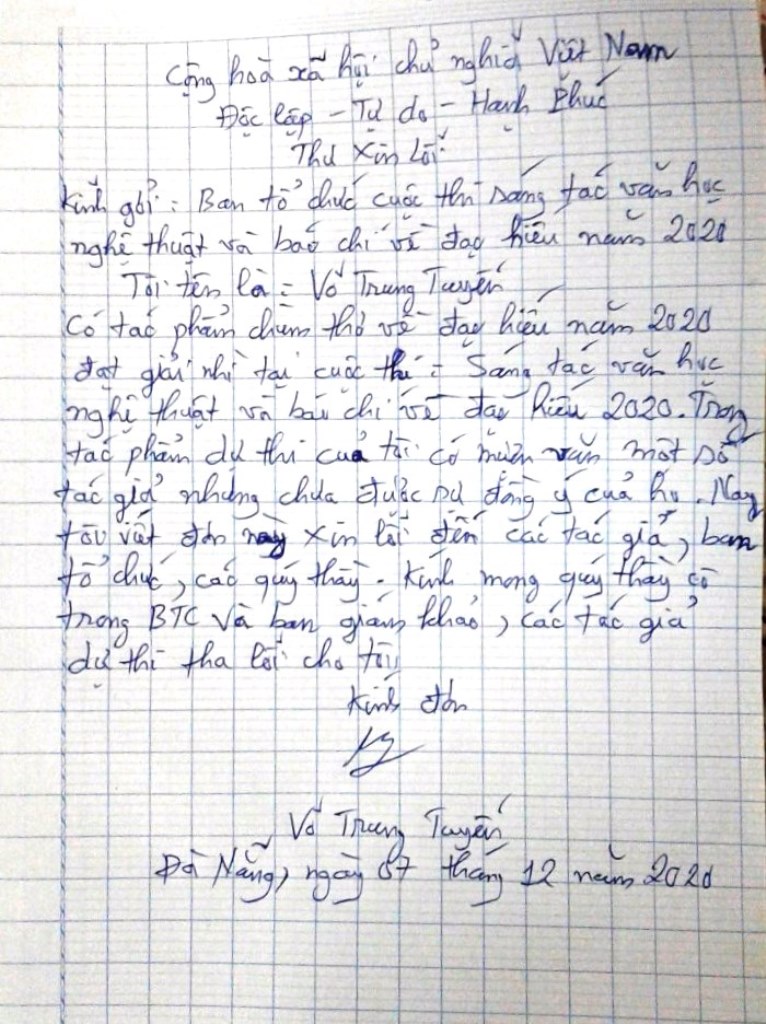 Cộng hoà xã hội chủ nghĩa Việt Nam
Độc lập - Tự do - Hạnh Phúc
Thư Xin Lỗi:
Kính gởi: Ban tổ chức cuộc thi sáng tác văn học
nghệ thuật và báo chí về đạo hiếu năm 2020
Tôi tên là: Võ Trung Tuyến
Có tác phẩm chùm thơ về đạo hiếu năm 2020
đạt giải nhì tại cuộc thi: Sáng tác văn học
nghệ thuật và báo chí về đạo hiếu 2020. Trong
tác phẩm dự thi của tôi có mượn văn một số
tác giả nhưng chưa được sự đồng ý của họ. Nay
tôi viết đơn này xin lỗi đến các tác giả, ban
tổ chức, các quý thầy. Kính mong quý thầy cô
trong BTC và ban giám khảo, các tác giả
dự thi tha lỗi cho tôi
Kính đơn
Võ Trung Tuyến
Đà Nẵng, ngày 07 tháng 12 năm 2020